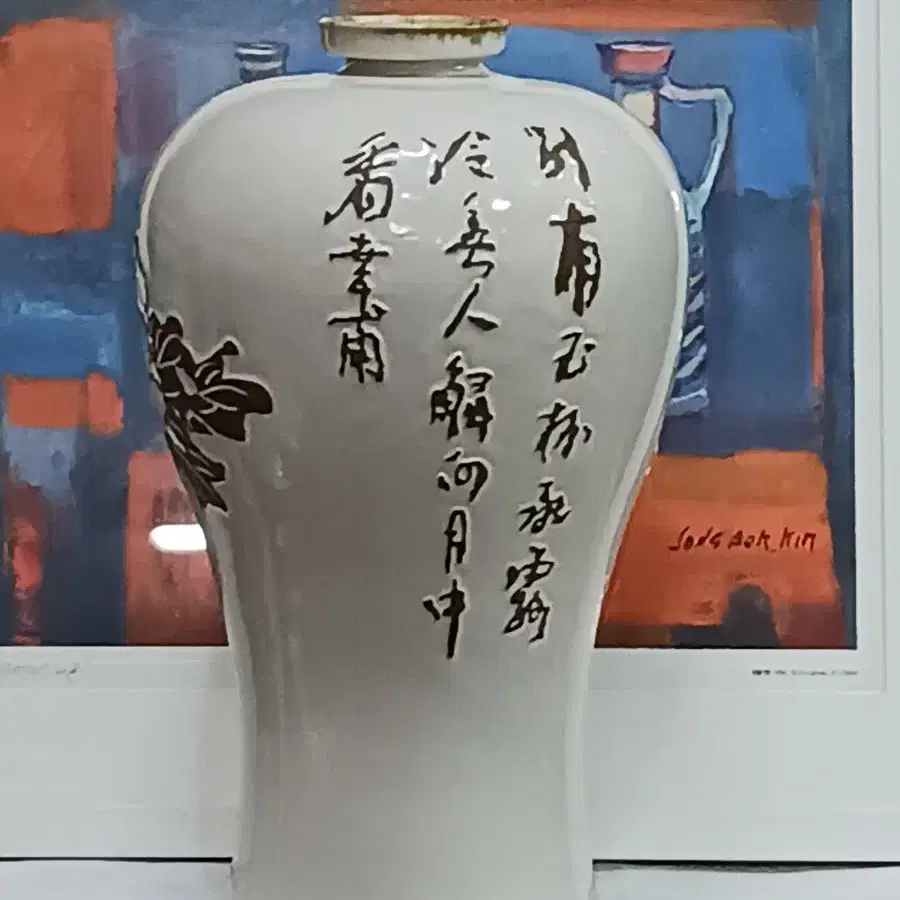 別有玉杯承露
冷無人解向月中
看 幸甫
Jong Bok. Kim